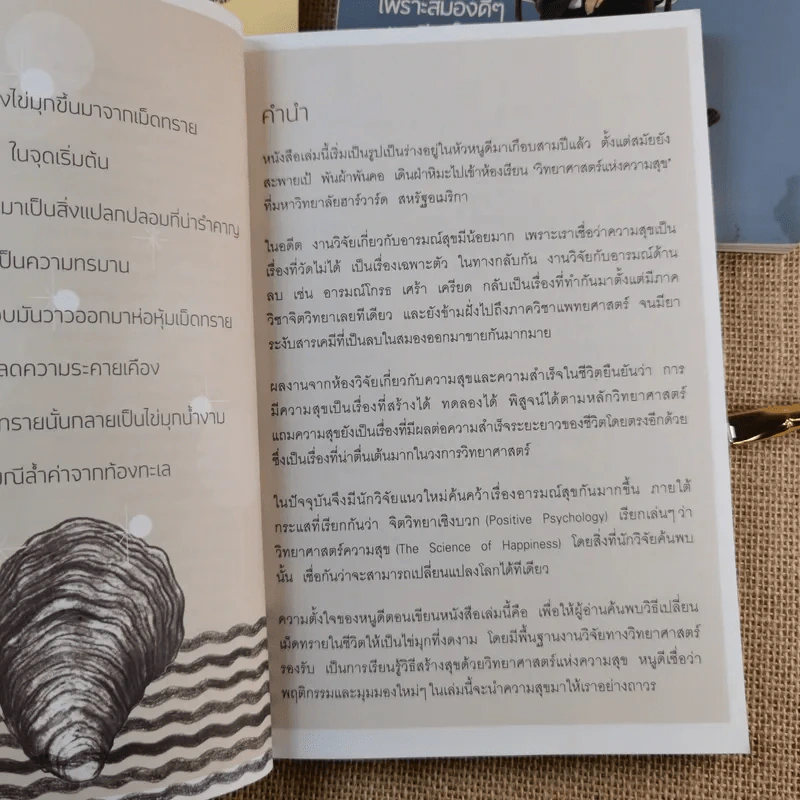 เพราะสมองดีๆ
งไข่มุกขึ้นมาจากเม็ดทราย
ในจุดเริ่มต้น
มาเป็นสิ่งแปลกปลอมที่น่ารำคาญ
ป็นความทรมาน
อบมันวาวออกมาห่อหุ้มเม็ดทราย
ลดความระคายเคือง
ทรายนั้นกลายเป็นไข่มุกน้ำงาม
มณีล้ำค่าจากท้องทะเล
คำนำ
หนังสือเล่มนี้เริ่มเป็นรูปเป็นร่างอยู่ในหัวหนูดีมาเกือบสามปีแล้ว ตั้งแต่สมัยยัง
สะพายเป้ พันผ้าพันคอ เดินฝ่าหิมะไปเข้าห้องเรียน ‘วิทยาศาสตร์แห่งความสุข’
ที่มหาวิทยาลัยฮาร์วาร์ด สหรัฐอเมริกา
ในอดีต งานวิจัยเกี่ยวกับอารมณ์สุขมีน้อยมาก เพราะเราเชื่อว่าความสุขเป็น
เรื่องที่วัดไม่ได้ เป็นเรื่องเฉพาะตัว ในทางกลับกัน งานวิจัยกับอารมณ์ด้าน
ลบ เช่น อารมณ์โกรธ เศร้า เครียด กลับเป็นเรื่องที่ทำกันมาตั้งแต่มีภาค
วิชาจิตวิทยาเลยทีเดียว และยังข้ามฝั่งไปถึงภาควิชาแพทยศาสตร์ จนมียา
ระงับสารเคมีที่เป็นลบในสมองออกมาขายกันมากมาย
ผลงานจากห้องวิจัยเกี่ยวกับความสุขและความสำเร็จในชีวิตยืนยันว่า การ
มีความสุขเป็นเรื่องที่สร้างได้ ทดลองได้ พิสูจน์ได้ตามหลักวิทยาศาสตร์
แถมความสุขยังเป็นเรื่องที่มีผลต่อความสำเร็จระยะยาวของชีวิตโดยตรงอีกด้วย
ซึ่งเป็นเรื่องที่น่าตื่นเต้นมากในวงการวิทยาศาสตร์
ในปัจจุบันจึงมีนักวิจัยแนวใหม่ค้นคว้าเรื่องอารมณ์สุขกันมากขึ้น ภายใต้
กระแสที่เรียกกันว่า จิตวิทยาเชิงบวก (Positive Psychology) เรียกเล่นๆ ว่า
วิทยาศาสตร์ความสุข (The Science of Happiness) โดยสิ่งที่นักวิจัยค้นพบ
นั้น เชื่อกันว่าจะสามารถเปลี่ยนแปลงโลกได้ทีเดียว
ความตั้งใจของหนูดีตอนเขียนหนังสือเล่มนี้คือ เพื่อให้ผู้อ่านค้นพบวิธีเปลี่ยน
เม็ดทรายในชีวิตให้เป็นไข่มุกที่งดงาม โดยมีพื้นฐานงานวิจัยทางวิทยาศาสตร์
รองรับ เป็นการเรียนรู้วิธีสร้างสุขด้วยวิทยาศาสตร์แห่งความสุข หนูดีเชื่อว่า
พฤติกรรมและมุมมองใหม่ๆ ในเล่มนี้จะนำความสุขมาให้เราอย่างถาวร